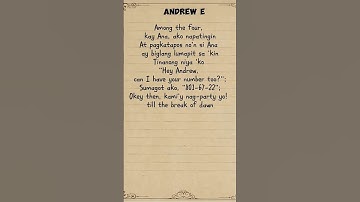 ANDREW E
Among the four,
kay Ana, ako napatingin
At pagkatapos no'n si Ana
ay biglang lumapit sa 'kin
Tinanong niya 'ko
"Hey Andrew,
can I have your number too?";
Sumagot ako, "801-67-22";
Okey then, kami'y nag-party yo!
till the break of dawn